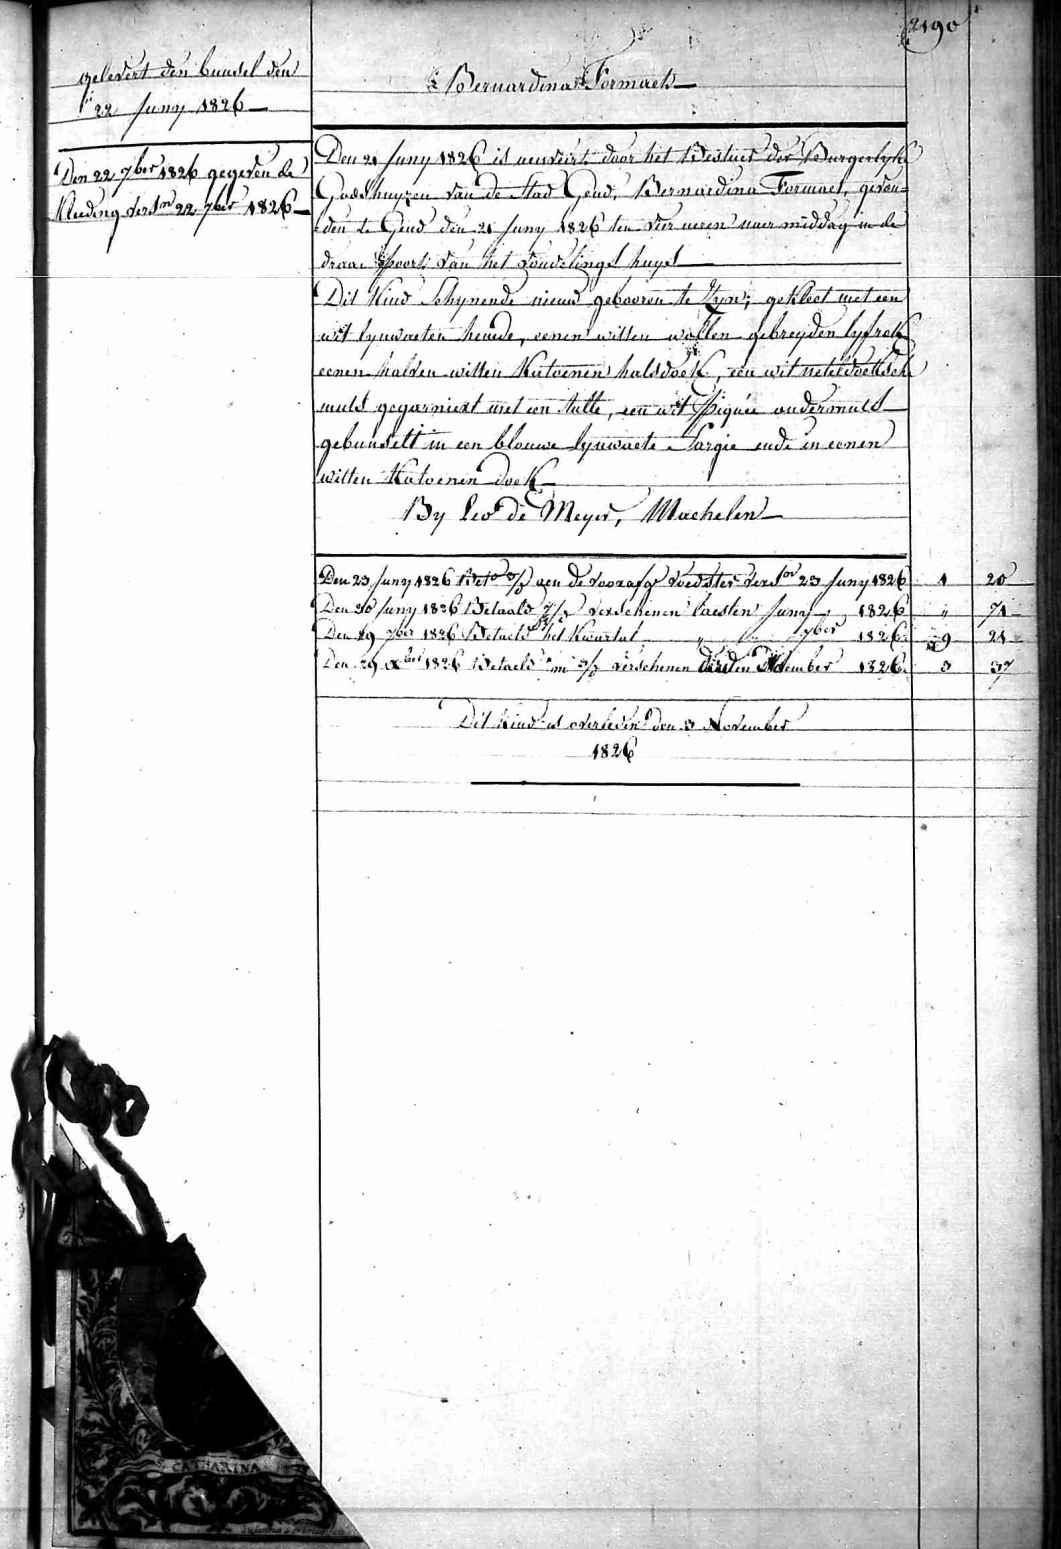 2190
gelevert den bundel den
22 Juny 1826
Den 22 7ber 1826 gegeven de
Kleeding versn 22 7ber 1826
Bernardina Formael
Den 21 Juny 1826 is aenveirt door het Bestier der Burgerlyke
Godshuyzen van de Stad Gend, Bernardina Formael, gevon-
den te Gend den 21 Juny 1826 ten vier ueren naer middag in de
draai poort van het vondelings huys
Dit Kind Schynende nieuw gebooren te Zyn; gekleet met een
wit lynwaeten hemde, eenen witten wollen gebreyden lyfrok
eenen halven witten Katoenen halsdoek, een wit neteldoeksch
muts gegarniert met een tulle, een wit Piquée ondermuts
gebundelt in een blouwe lynwaete Sargie ende in eenen
witten Katoenen doek
By Leo de Meyer, Machelen
Den 23 Juny 1826 aen de voedster 23 Juny 1826 1 20
Den 30 Juny 1826 Betaald verschenen laesten Juny 1826 " 71
Den 29 7ber 1826 Betaeld het Kwartal " " 7ber 1826 9 21
Den 29 Xber 1826 Betaeld verschenen derden November 1826 3 37
Dit Kind is overleden den 3 November
1826
S. CATHARINA